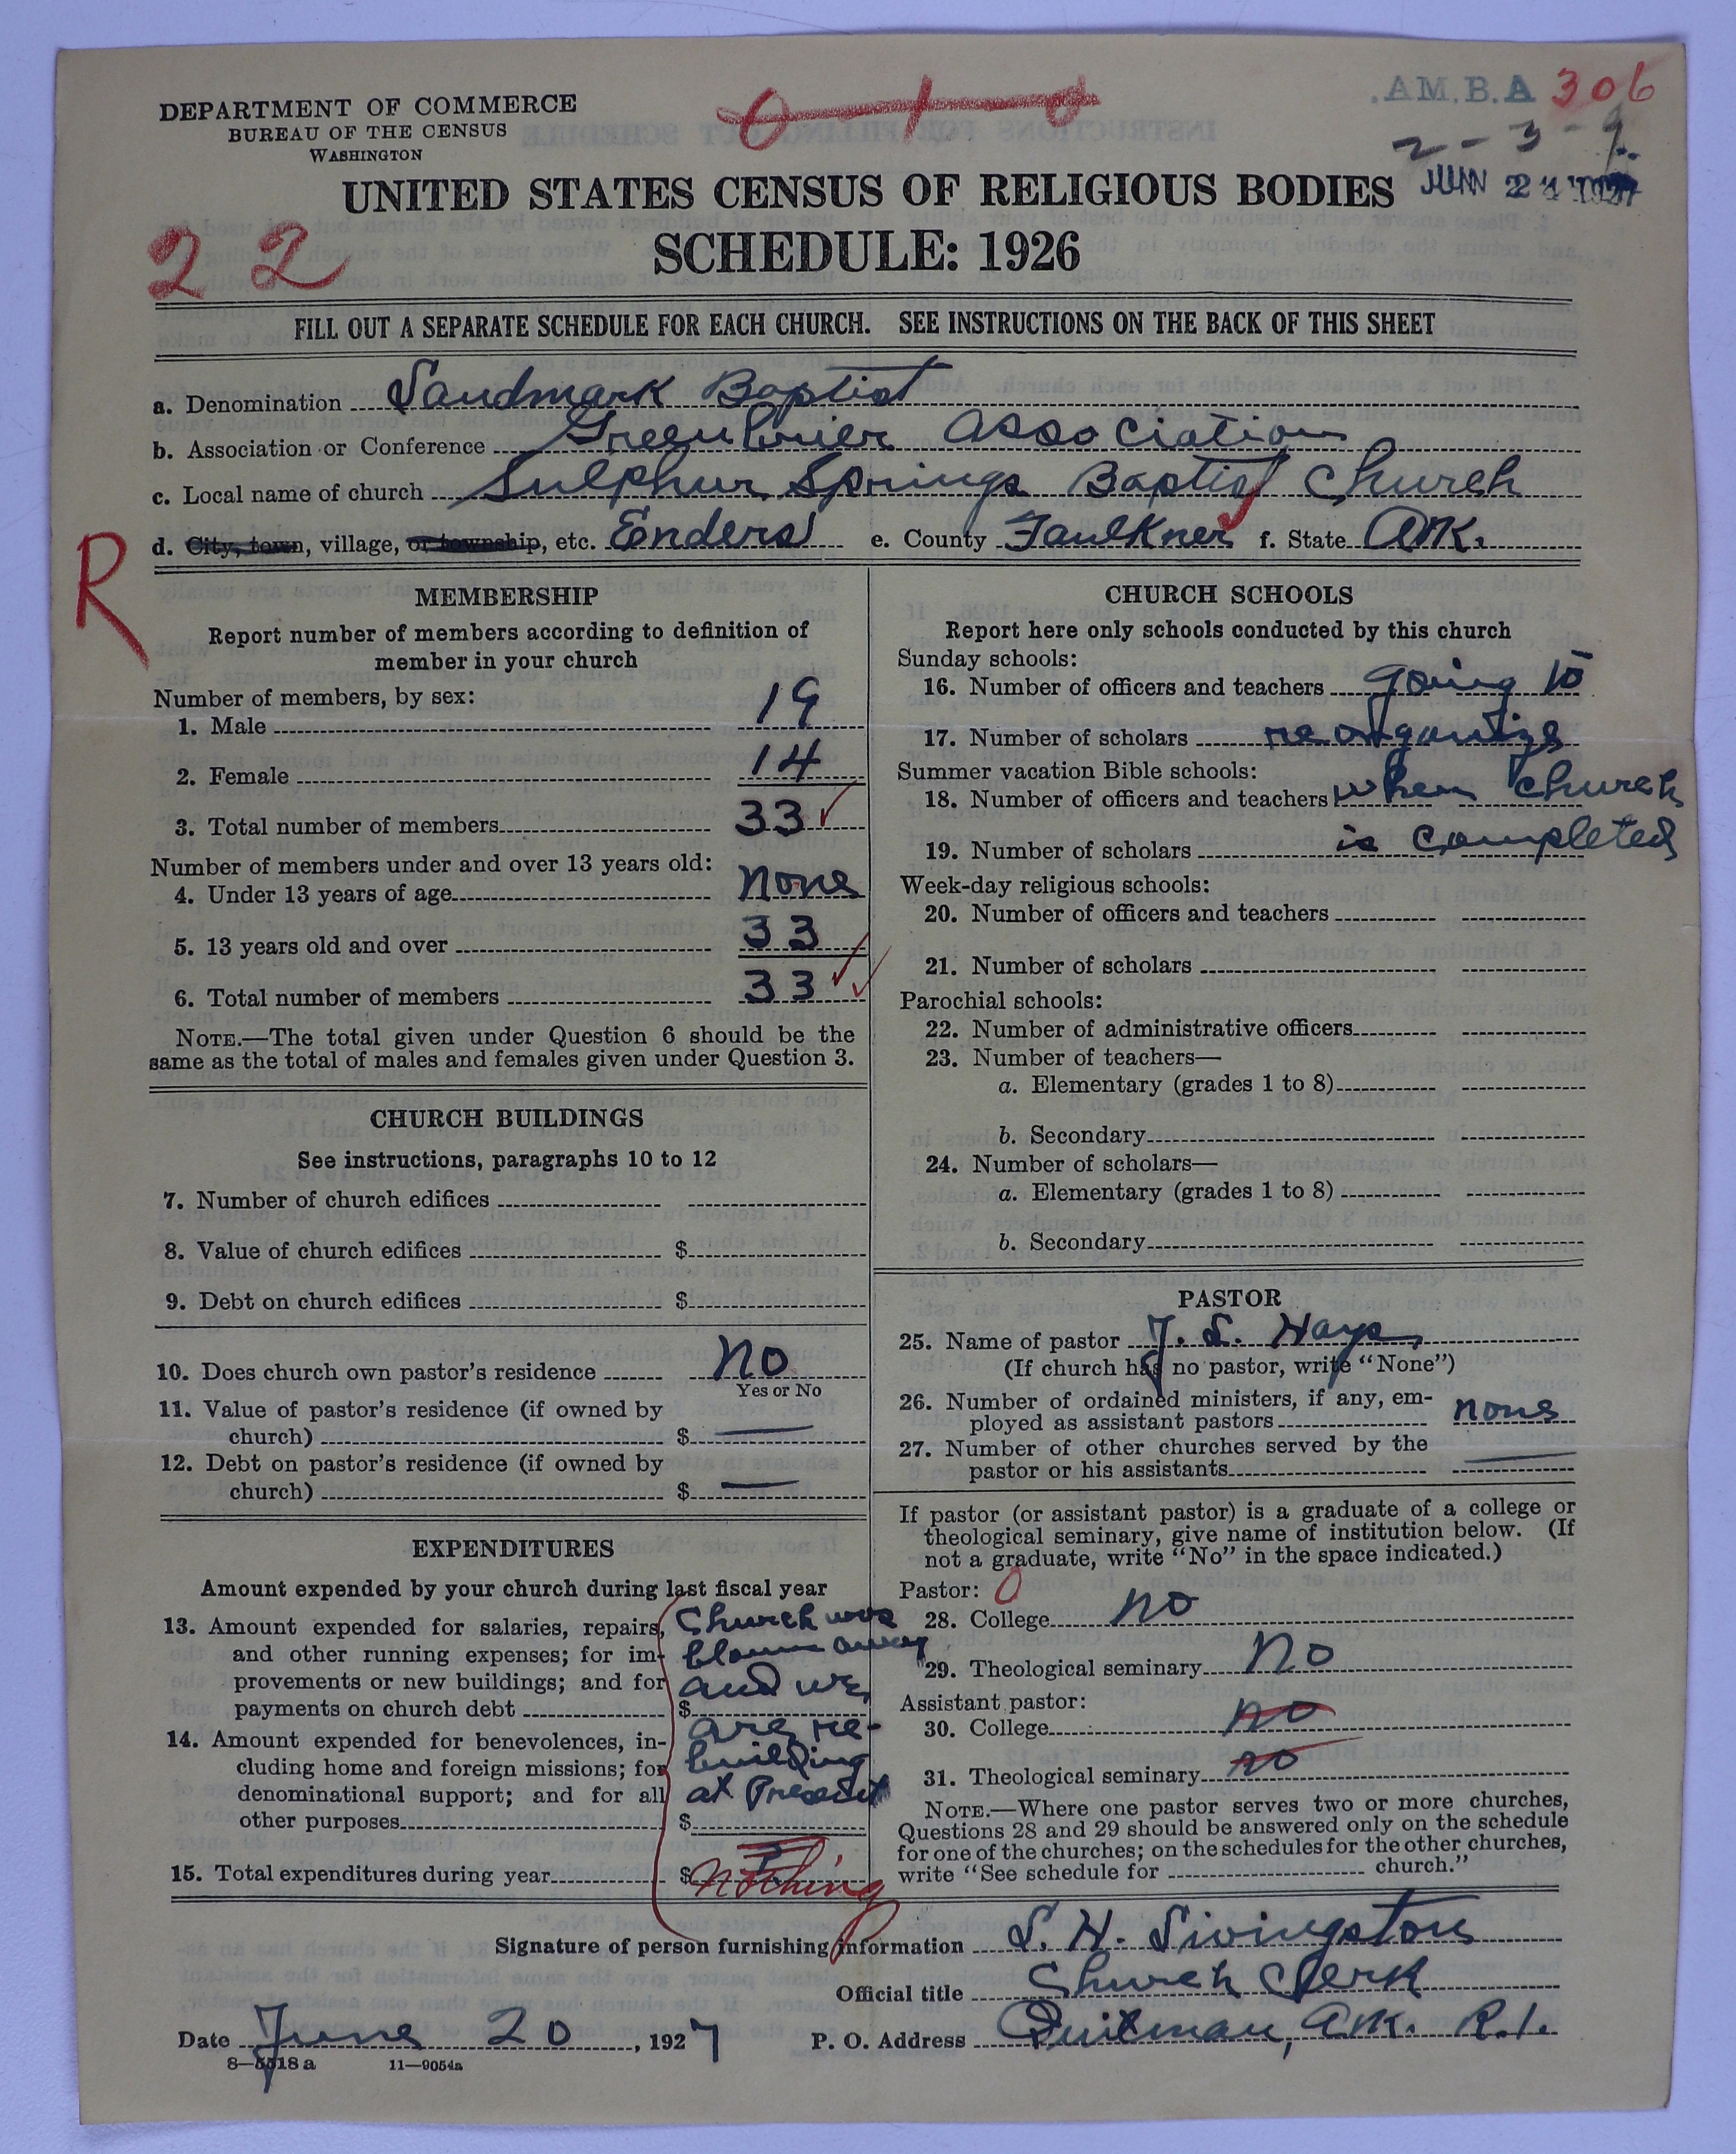 DEPARTMENT OF COMMERCE
BUREAU OF THE CENSUS
WASHINGTON
0—1—0
A.M.B.A 306
2-3-9
UNITED STATES CENSUS OF RELIGIOUS BODIES
SCHEDULE: 1926
22
FILL OUT A SEPARATE SCHEDULE FOR EACH CHURCH. SEE INSTRUCTIONS ON THE BACK OF THIS SHEET
a. Denomination Landmark Baptist
b. Association or Conference Greenbrier Association
c. Local name of church Sulphur Springs Baptist Church
d. City, town, village, or township, etc. Enders e. County Faulkner f. State Ark.
R
MEMBERSHIP
Report number of members according to definition of
member in your church
Number of members, by sex:
1. Male 19
2. Female 14
3. Total number of members 33
Number of members under and over 13 years old:
4. Under 13 years of age none
5. 13 years old and over 33
6. Total number of members 33
NOTE.—The total given under Question 6 should be the
same as the total of males and females given under Question 3.
CHURCH BUILDINGS
See instructions, paragraphs 10 to 12
7. Number of church edifices
8. Value of church edifices $
9. Debt on church edifices $
10. Does church own pastor's residence No
Yes or No
11. Value of pastor's residence (if owned by
church) $ —
12. Debt on pastor's residence (if owned by
church) $ —
EXPENDITURES
Amount expended by your church during last fiscal year
13. Amount expended for salaries, repairs, Church was
and other running expenses; for im- blown away
provements or new buildings; and for and we
payments on church debt $
are re-
14. Amount expended for benevolences, in-
cluding home and foreign missions; for building
denominational support; and for all at Present
other purposes $
15. Total expenditures during year $ nothing
CHURCH SCHOOLS
Report here only schools conducted by this church
Sunday schools:
16. Number of officers and teachers going to
17. Number of scholars reorganize
Summer vacation Bible schools:
18. Number of officers and teachers when church
19. Number of scholars is completed
Week-day religious schools:
20. Number of officers and teachers
21. Number of scholars
Parochial schools:
22. Number of administrative officers
23. Number of teachers—
a. Elementary (grades 1 to 8)
b. Secondary
24. Number of scholars—
a. Elementary (grades 1 to 8)
b. Secondary
PASTOR
25. Name of pastor J. L. Hays
(If church has no pastor, write "None")
26. Number of ordained ministers, if any, em-
ployed as assistant pastors none
27. Number of other churches served by the
pastor or his assistants —
If pastor (or assistant pastor) is a graduate of a college or
theological seminary, give name of institution below. (If
not a graduate, write "No" in the space indicated.)
Pastor: 0
28. College no
29. Theological seminary No
Assistant pastor:
30. College no
31. Theological seminary no
NOTE.—Where one pastor serves two or more churches,
Questions 28 and 29 should be answered only on the schedule
for one of the churches; on the schedules for the other churches,
write "See schedule for church."
Signature of person furnishing information L. H. Livingston
Official title Church Clerk
Date June 20, 1927 P. O. Address Quitman, Ark. R.1.
8—5518a 11—9054a